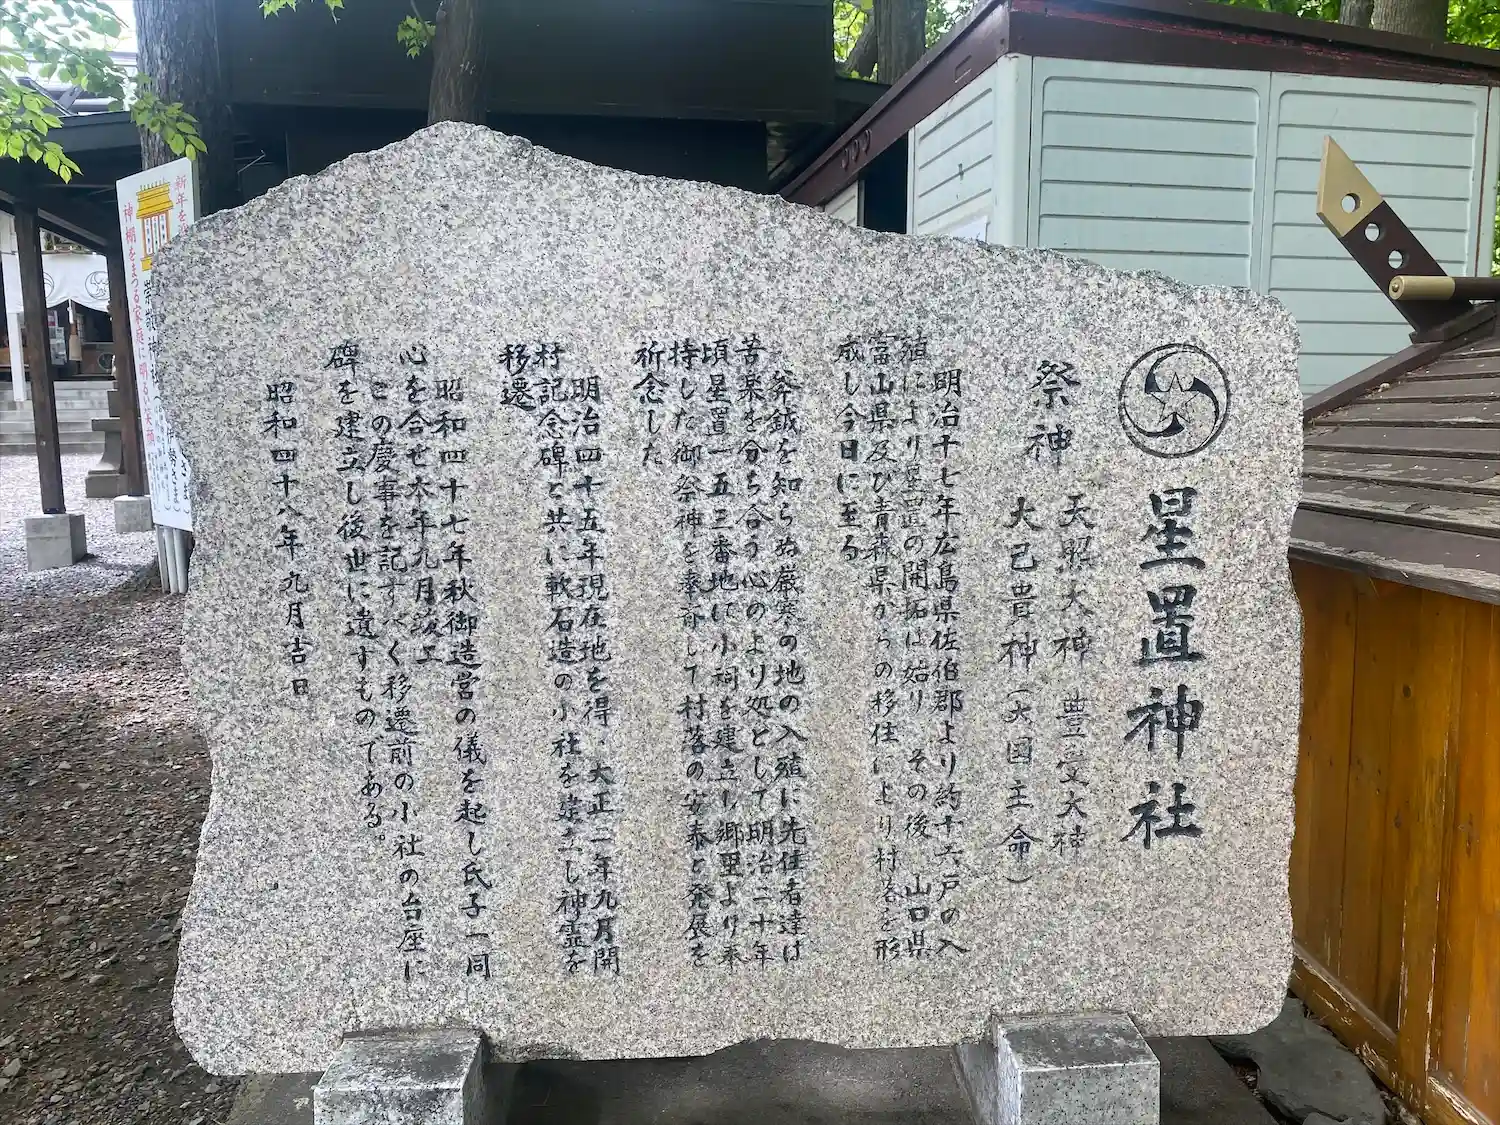 星置神社
祭神
天照大神 豊受大神
大己貴神(大国主命)
明治十七年広島県佐伯郡より約十六戸の入
殖により星置の開拓は始り、その後、山口県
富山県及び青森県からの移住により村落を形
成し今日に至る
斧鉞を知らぬ厳寒の地の入殖に先住者達は
苦楽を分ち合う心のより処として明治二十年
頃星置一五三番地に小祠を建立し郷里より奉
持した御祭神を奉斎して村落の安泰と発展を
祈念した
明治四十五年現在地を得、大正二年九月開
村記念碑と共に軟石造の小社を建立し神霊を
移遷
昭和四十七年秋御造営の儀を起し氏子一同
心を合せ本年九月竣工
この慶事を記すべく移遷前の小社の台座に
碑を建立し後世に遺すものである。
昭和四十八年九月吉日
新年を
神棚をまつる家庭に明るい笑顔
崇敬神社